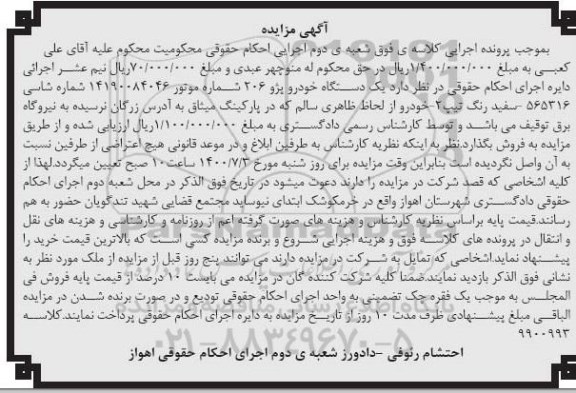 آگهی مزایده
بموجب پرونده اجرایی کلاسه ی فوق شعبه ی دوم اجرایی احکام حقوقی محکومیت محکوم علیه آقای علی
کعبی به مبلغ ۱/۴۰۰/۰۰۰/۰۰۰ریال در حق محکوم له منوچهر عبدی و مبلغ ۷۰/۰۰۰/۰۰۰ریال نیم عشر اجرائی
دایره اجرای احکام حقوقی در نظر دارد یک دستگاه خودرو پژو ۲۰۶ شماره موتور ۱۴۱۹۰۰۸۴۰۴۶ شماره شاسی
۵۶۵۳۱۶ -سفید رنگ تیپ۲-خودرو از لحاظ ظاهری سالم که در پارکینگ میثاق به آدرس زرگان نرسیده به نیروگاه
برق توقیف می باشد و توسط کارشناس رسمی دادگستری به مبلغ ۱/۱۰۰/۰۰۰/۰۰۰ریال ارزیابی شده و از طریق
مزایده به فروش بگذارد.نظر به اینکه نظریه کارشناس به طرفین ابلاغ و در موعد قانونی هیچ اعتراضی از طرفین نسبت
به آن واصل نگردیده است بنابراین وقت مزایده برای روز شنبه مورخ ۱۴۰۰/۷/۳ ساعت۱۰ صبح تعیین میگردد.لهذا از
کلیه اشخاصی که قصد شرکت در مزایده را دارند دعوت میشود در تاریخ فوق الذکر در محل شعبه دوم اجرای احکام
حقوقی دادگستری شهرستان اهواز واقع در خرمکوشک ابتدای نیوساید مجتمع قضایی شهید تندگویان حضور به هم
رسانند.قیمت پایه براساس نظریه کارشناس و هزینه های صورت گرفته اعم از روزنامه و کارشناسی و هزینه های نقل
و انتقال در پرونده های کلاسه فوق و هزینه اجرایی شروع و برنده مزایده کسی است که بالاترین قیمت خرید را
پیشنهاد نماید.اشخاصی که تمایل به شرکت در مزایده دارند می توانند پنج روز قبل از مزایده از ملک مورد نظر به
نشانی فوق الذکر بازدید نمایند.ضمنا کلیه شرکت کننده گان در مزایده می بایست ۱۰ درصد از قیمت پایه فروش فی
المجلس به موجب یک فقره چک تضمینی به واحد اجرای احکام حقوقی تودیع و در صورت برنده شدن در مزایده
الباقی مبلغ پیشنهادی ظرف مدت ۱۰ روز از تاریخ مزایده به دایره اجرای احکام حقوقی پرداخت نمایند.کلاسه
۹۹۰۰۹۹۳
۰۲۱-۸۸۳۴۹۶۷۰-۵
احتشام رئوفی -دادورز شعبه ی دوم اجرای احکام حقوقی اهواز